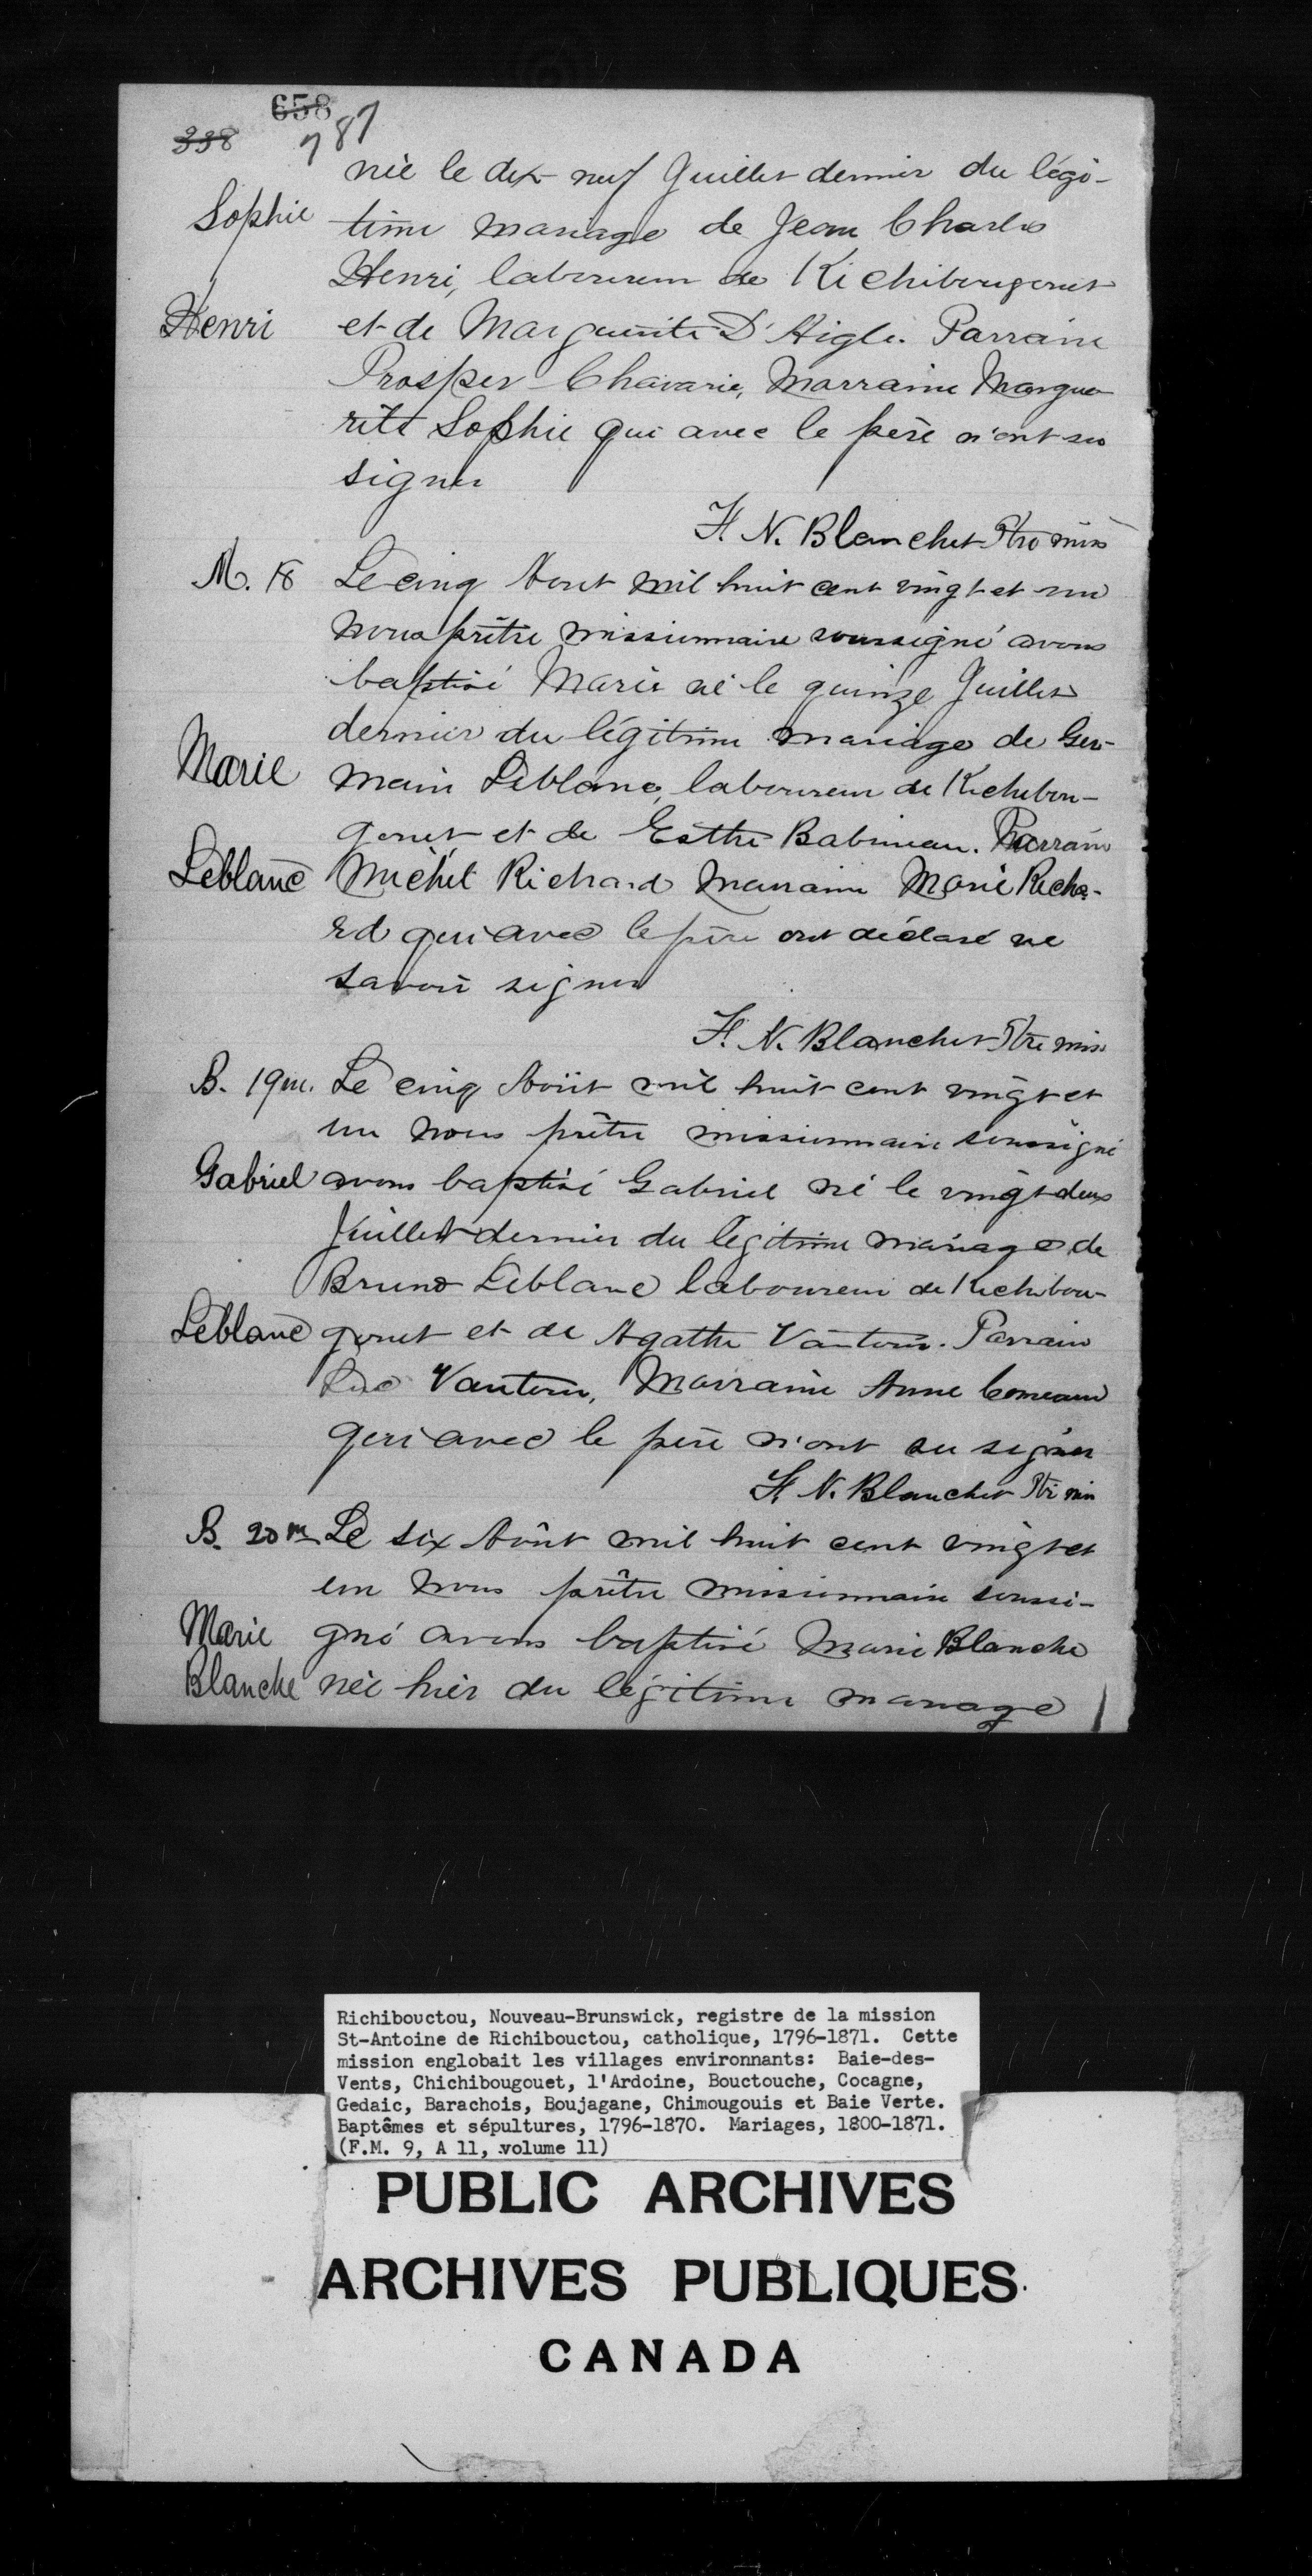 658
338
787
née le dix neuf Juillet dernier du légi-
Sophie
time mariage de Jean Charles
Henri, laboureur de Kichibougouet
Henri
et de Marguerite D'Aigle. Parrain
Prosper Chavarie, Marraine Margue-
rite Sophie qui avec le père n'ont su
signer
F. N. Blanchet Ptre miss
M. 18
Le cinq Aout mil huit cent vingt et un
nous prêtre missionnaire soussigné avons
baptisé Marie né le quinze Juillet
dernier du légitime mariage de Ger-
Marie
main Leblanc, laboureur de Kichibou-
gouet et de Esther Babineau. Parrain
Leblanc
Michel Richard Marraine Marie Richa-
rd qui avec le père ont déclaré ne
savoir signer
F. N. Blanchet Ptre miss
B. 19m.
Le cinq Août mil huit cent vingt et
un nous prêtre missionnaire soussigné
Gabriel
avons baptisé Gabriel né le vingt deux
Juillet dernier du légitime mariage de
Bruno Leblanc laboureur de Kichibou-
Leblanc
gouet et de Agathe Vautour. Parrain
Luc Vautour, Marraine Anne Comeau
qui avec le père n'ont su signer
F. N. Blanchet Ptre miss
B. 20m
Le six Août mil huit cent vingt et
un nous prêtre missionnaire soussi-
Marie
gné avons baptisé Marie Blanche
Blanche
née hier du légitime mariage
Richibouctou, Nouveau-Brunswick, registre de la mission
St-Antoine de Richibouctou, catholique, 1796-1871. Cette
mission englobait les villages environnants: Baie-des-
Vents, Chichibougouet, l'Ardoine, Bouctouche, Cocagne,
Gedaic, Barachois, Boujagane, Chimougouis et Baie Verte.
Baptêmes et sépultures, 1796-1870. Mariages, 1800-1871.
(F.M. 9, A 11, volume 11)
PUBLIC ARCHIVES
ARCHIVES PUBLIQUES
CANADA